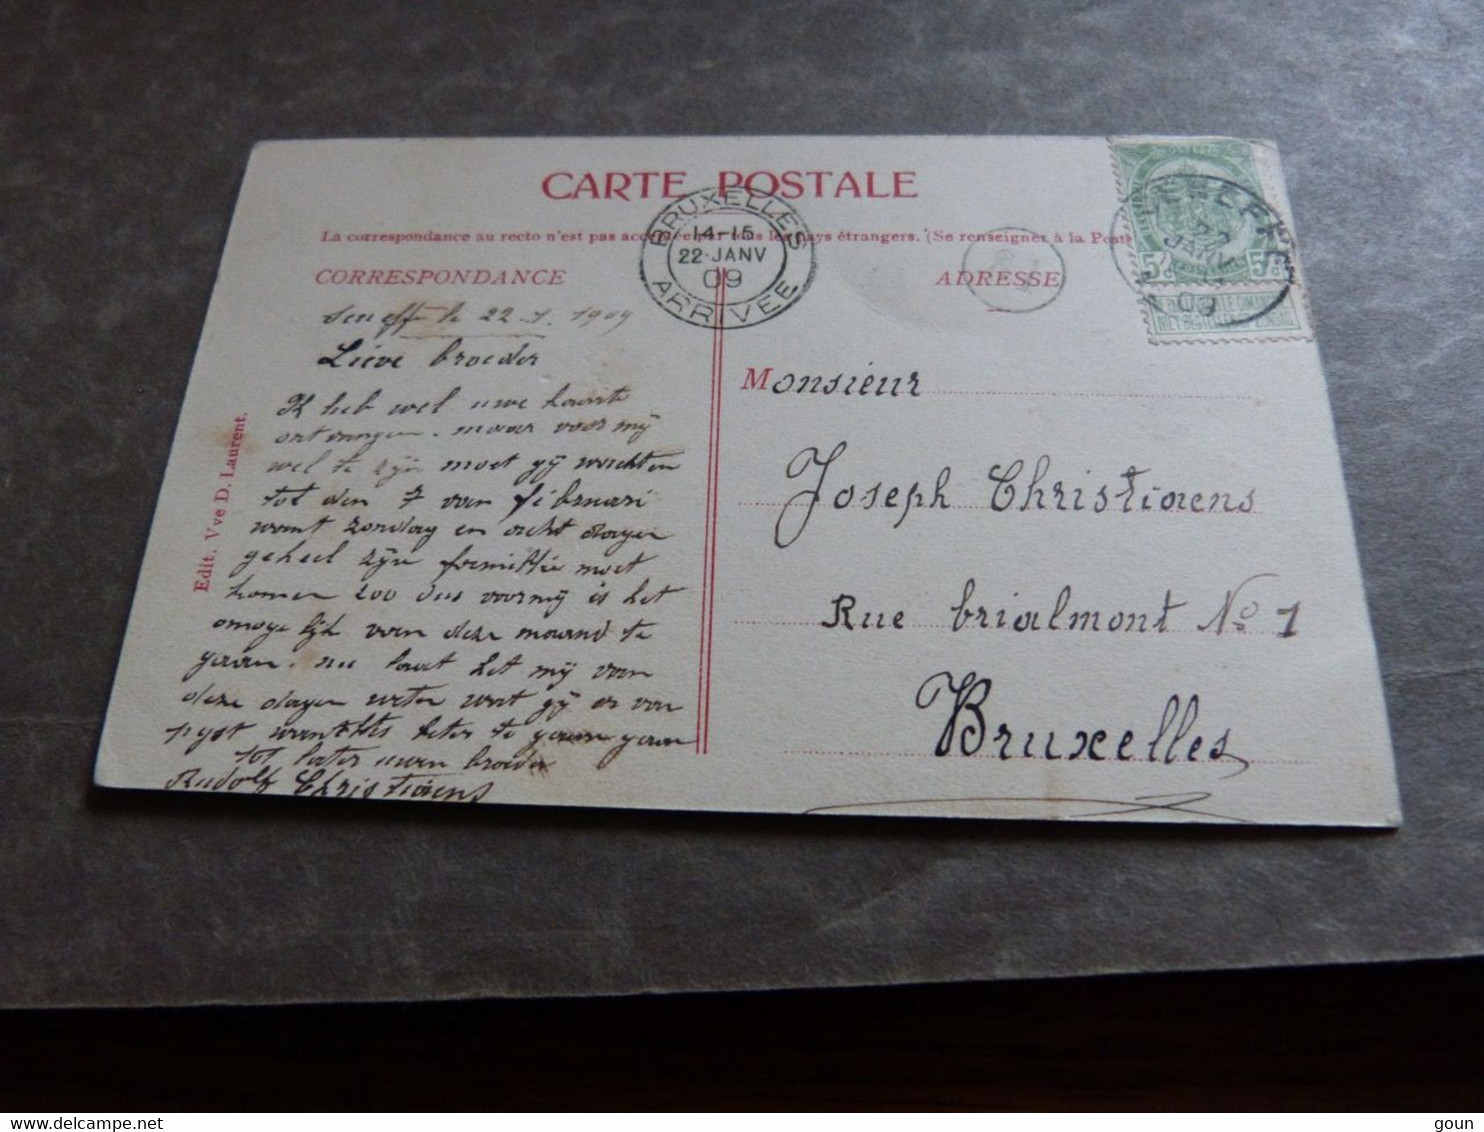 CARTE POSTALE
La correspondance au recto n'est pas acceptée par tous les pays étrangers. (Se renseigner à la Poste
CORRESPONDANCE
ADRESSE
BRUXELLES
14-15
22·JANV
09
ARRIVEE
SENEFFE
22
JANV
09
5c 5c
Edit. Vve D. Laurent.
Seneffe le 22-1-1909
Lieve broeder
Ik heb wel uwe kaarte
ontvangen. maar voor mij
wel te zijn moet gij wachten
tot den 7 van februari
want zondag en acht dagen
geheel zijn moet
komen zoo dus voor mij is het
omogelijk van deze maand te
gaan. nu laat het mij van
deze dagen weten wat gij er van
te gaan gaan
tot later uwen broeder
Rudolf Christiaens
Monsieur
Joseph Christiaens
Rue brialmont No 1
Bruxelles
www.delcampe.net
goun